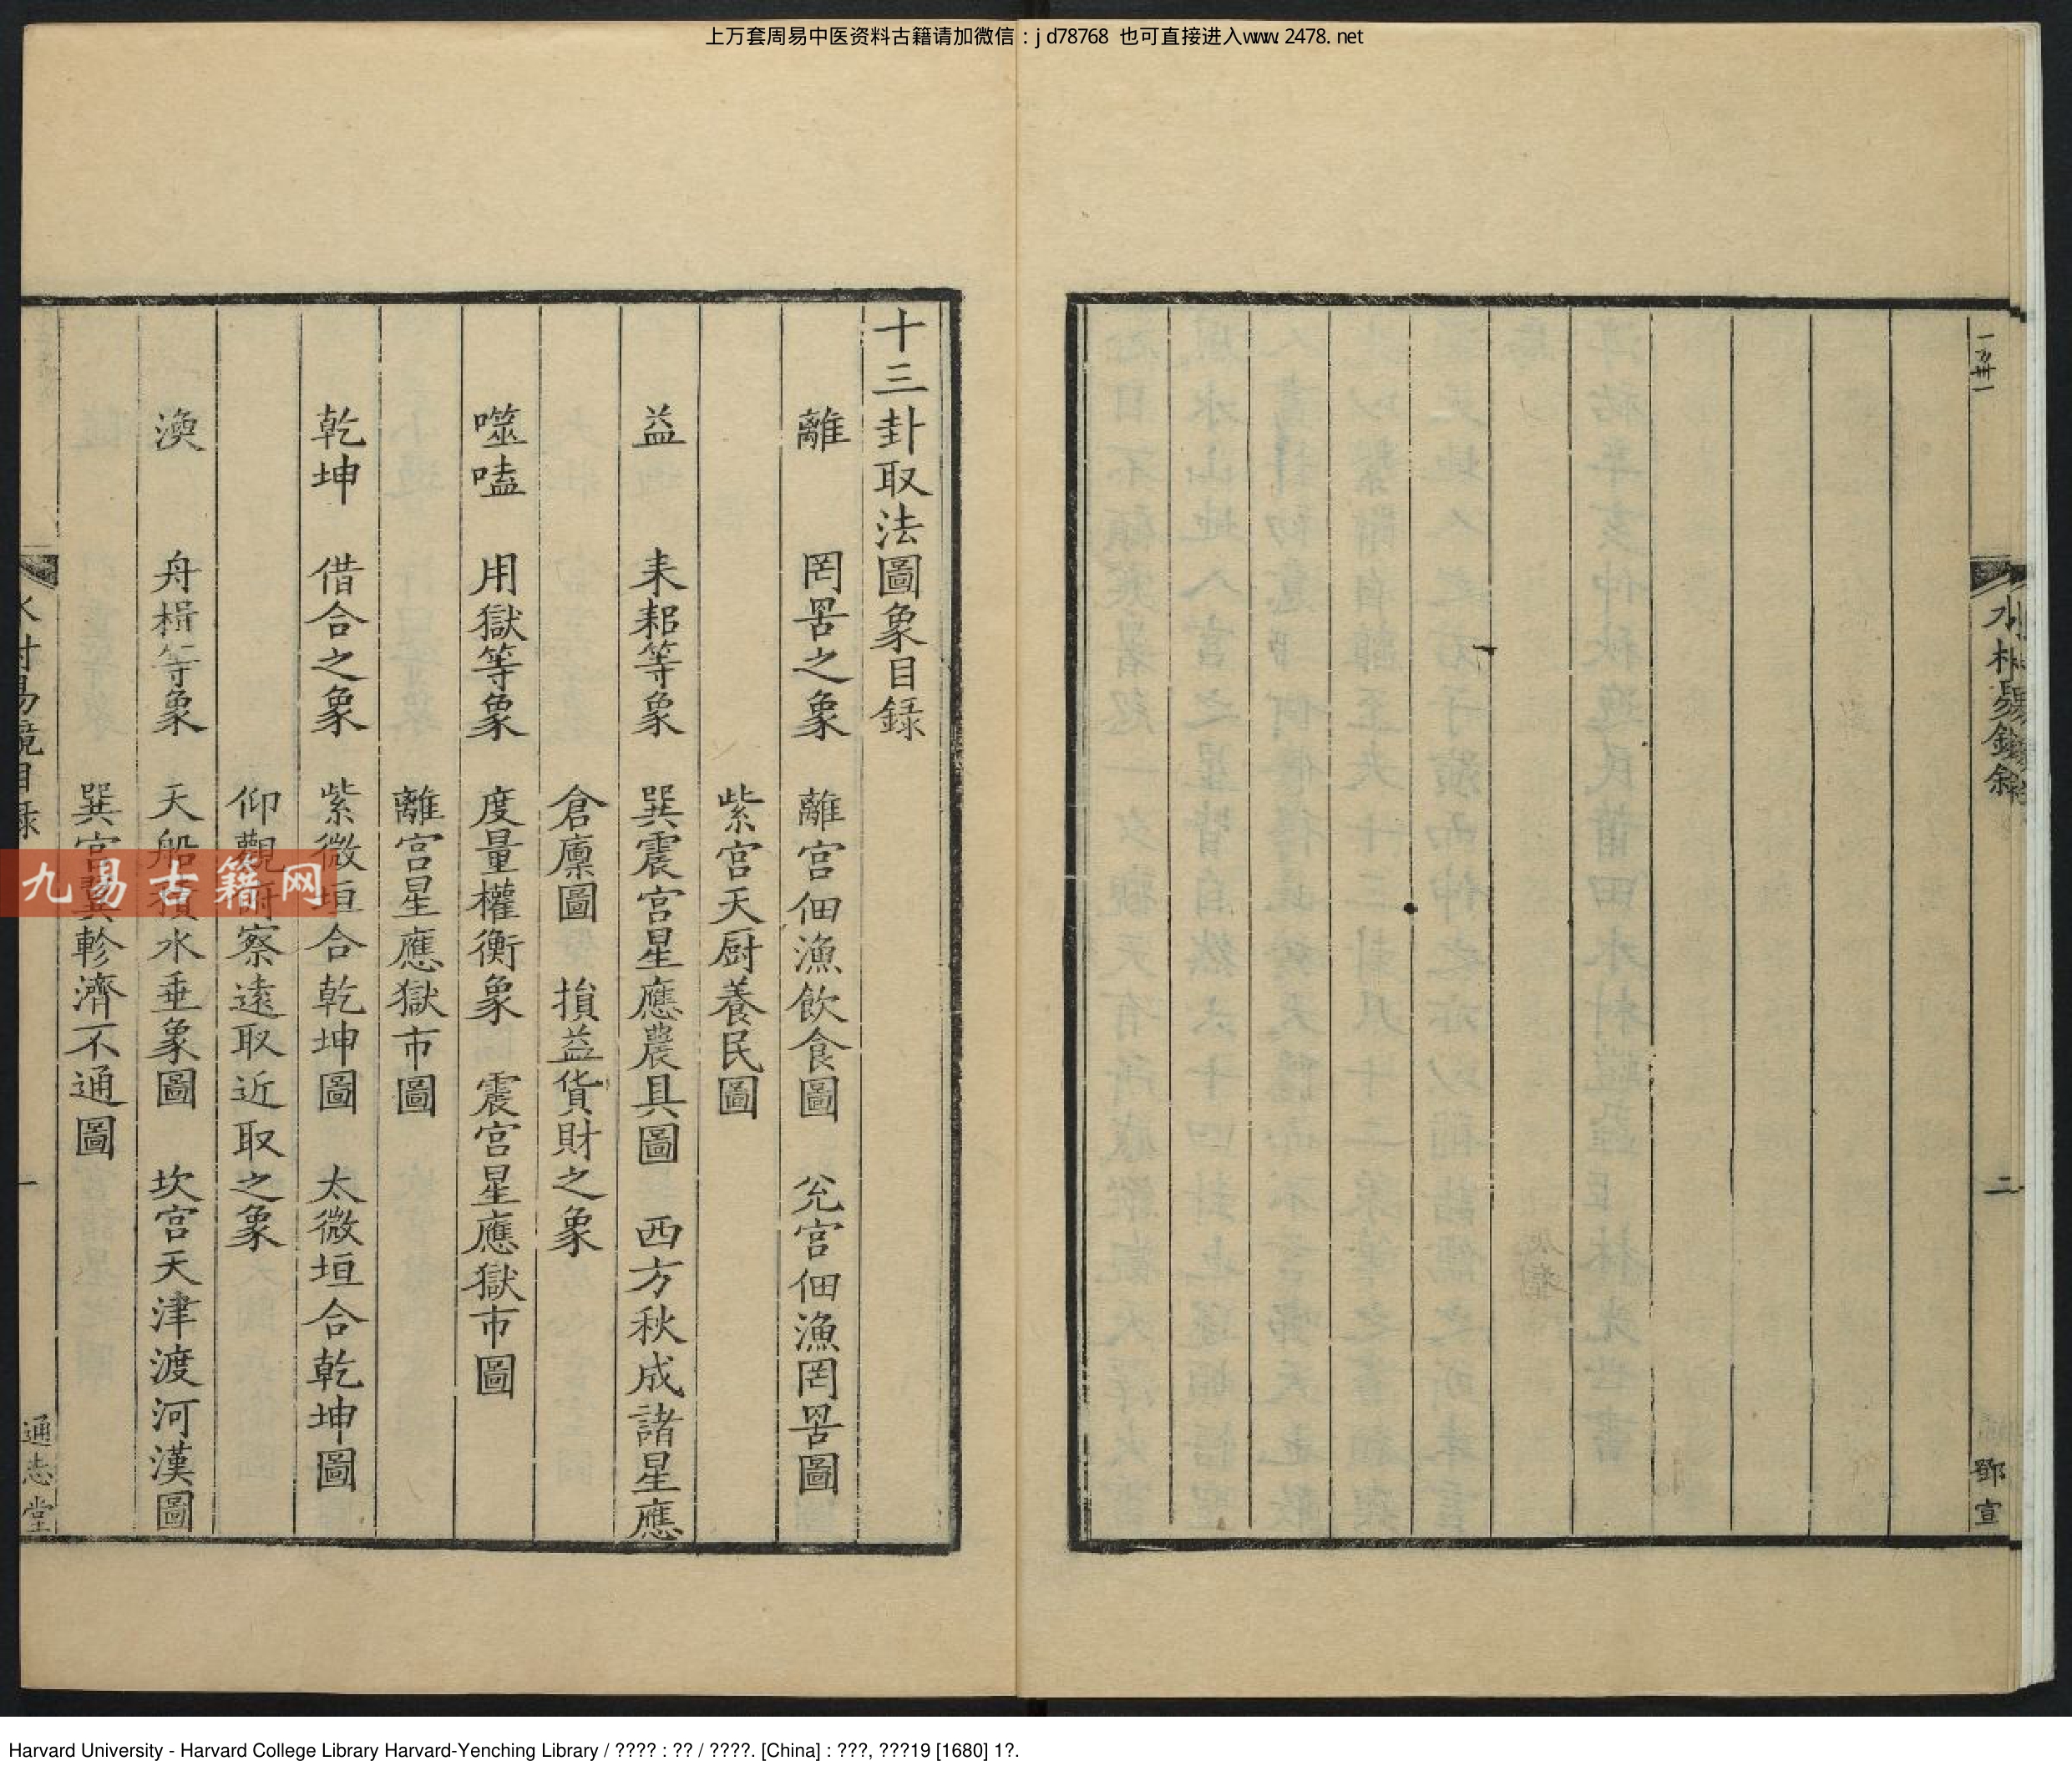 上万套周易中医资料古籍请加微信：jd78768 也可直接进入www.2478.net
水村易鏡敘
二
鄧宣
十三卦取法圖象目録
離 罔罟之象 離宮佃漁飲食圖 兊宮佃漁罔罟圖
紫宮天厨養民圖
益 耒耜等象 巽震宮星應農具圖 西方秋成諸星應
倉廪圖 損益貨財之象
噬嗑 用獄等象 度量權衡象 震宮星應獄市圖
離宮星應獄市圖
乾坤 借合之象 紫微垣合乾坤圖 太微垣合乾坤圖
仰觀俯察遠取近取之象
渙 舟楫等象 天船積水垂象圖 坎宮天津渡河漢圖
巽宮翼軫濟不通圖
水村易鏡目録
一
通志堂
九易古籍网
Harvard University - Harvard College Library Harvard-Yenching Library / ???? : ?? / ????. [China] : ???, ???19 [1680] 1?.